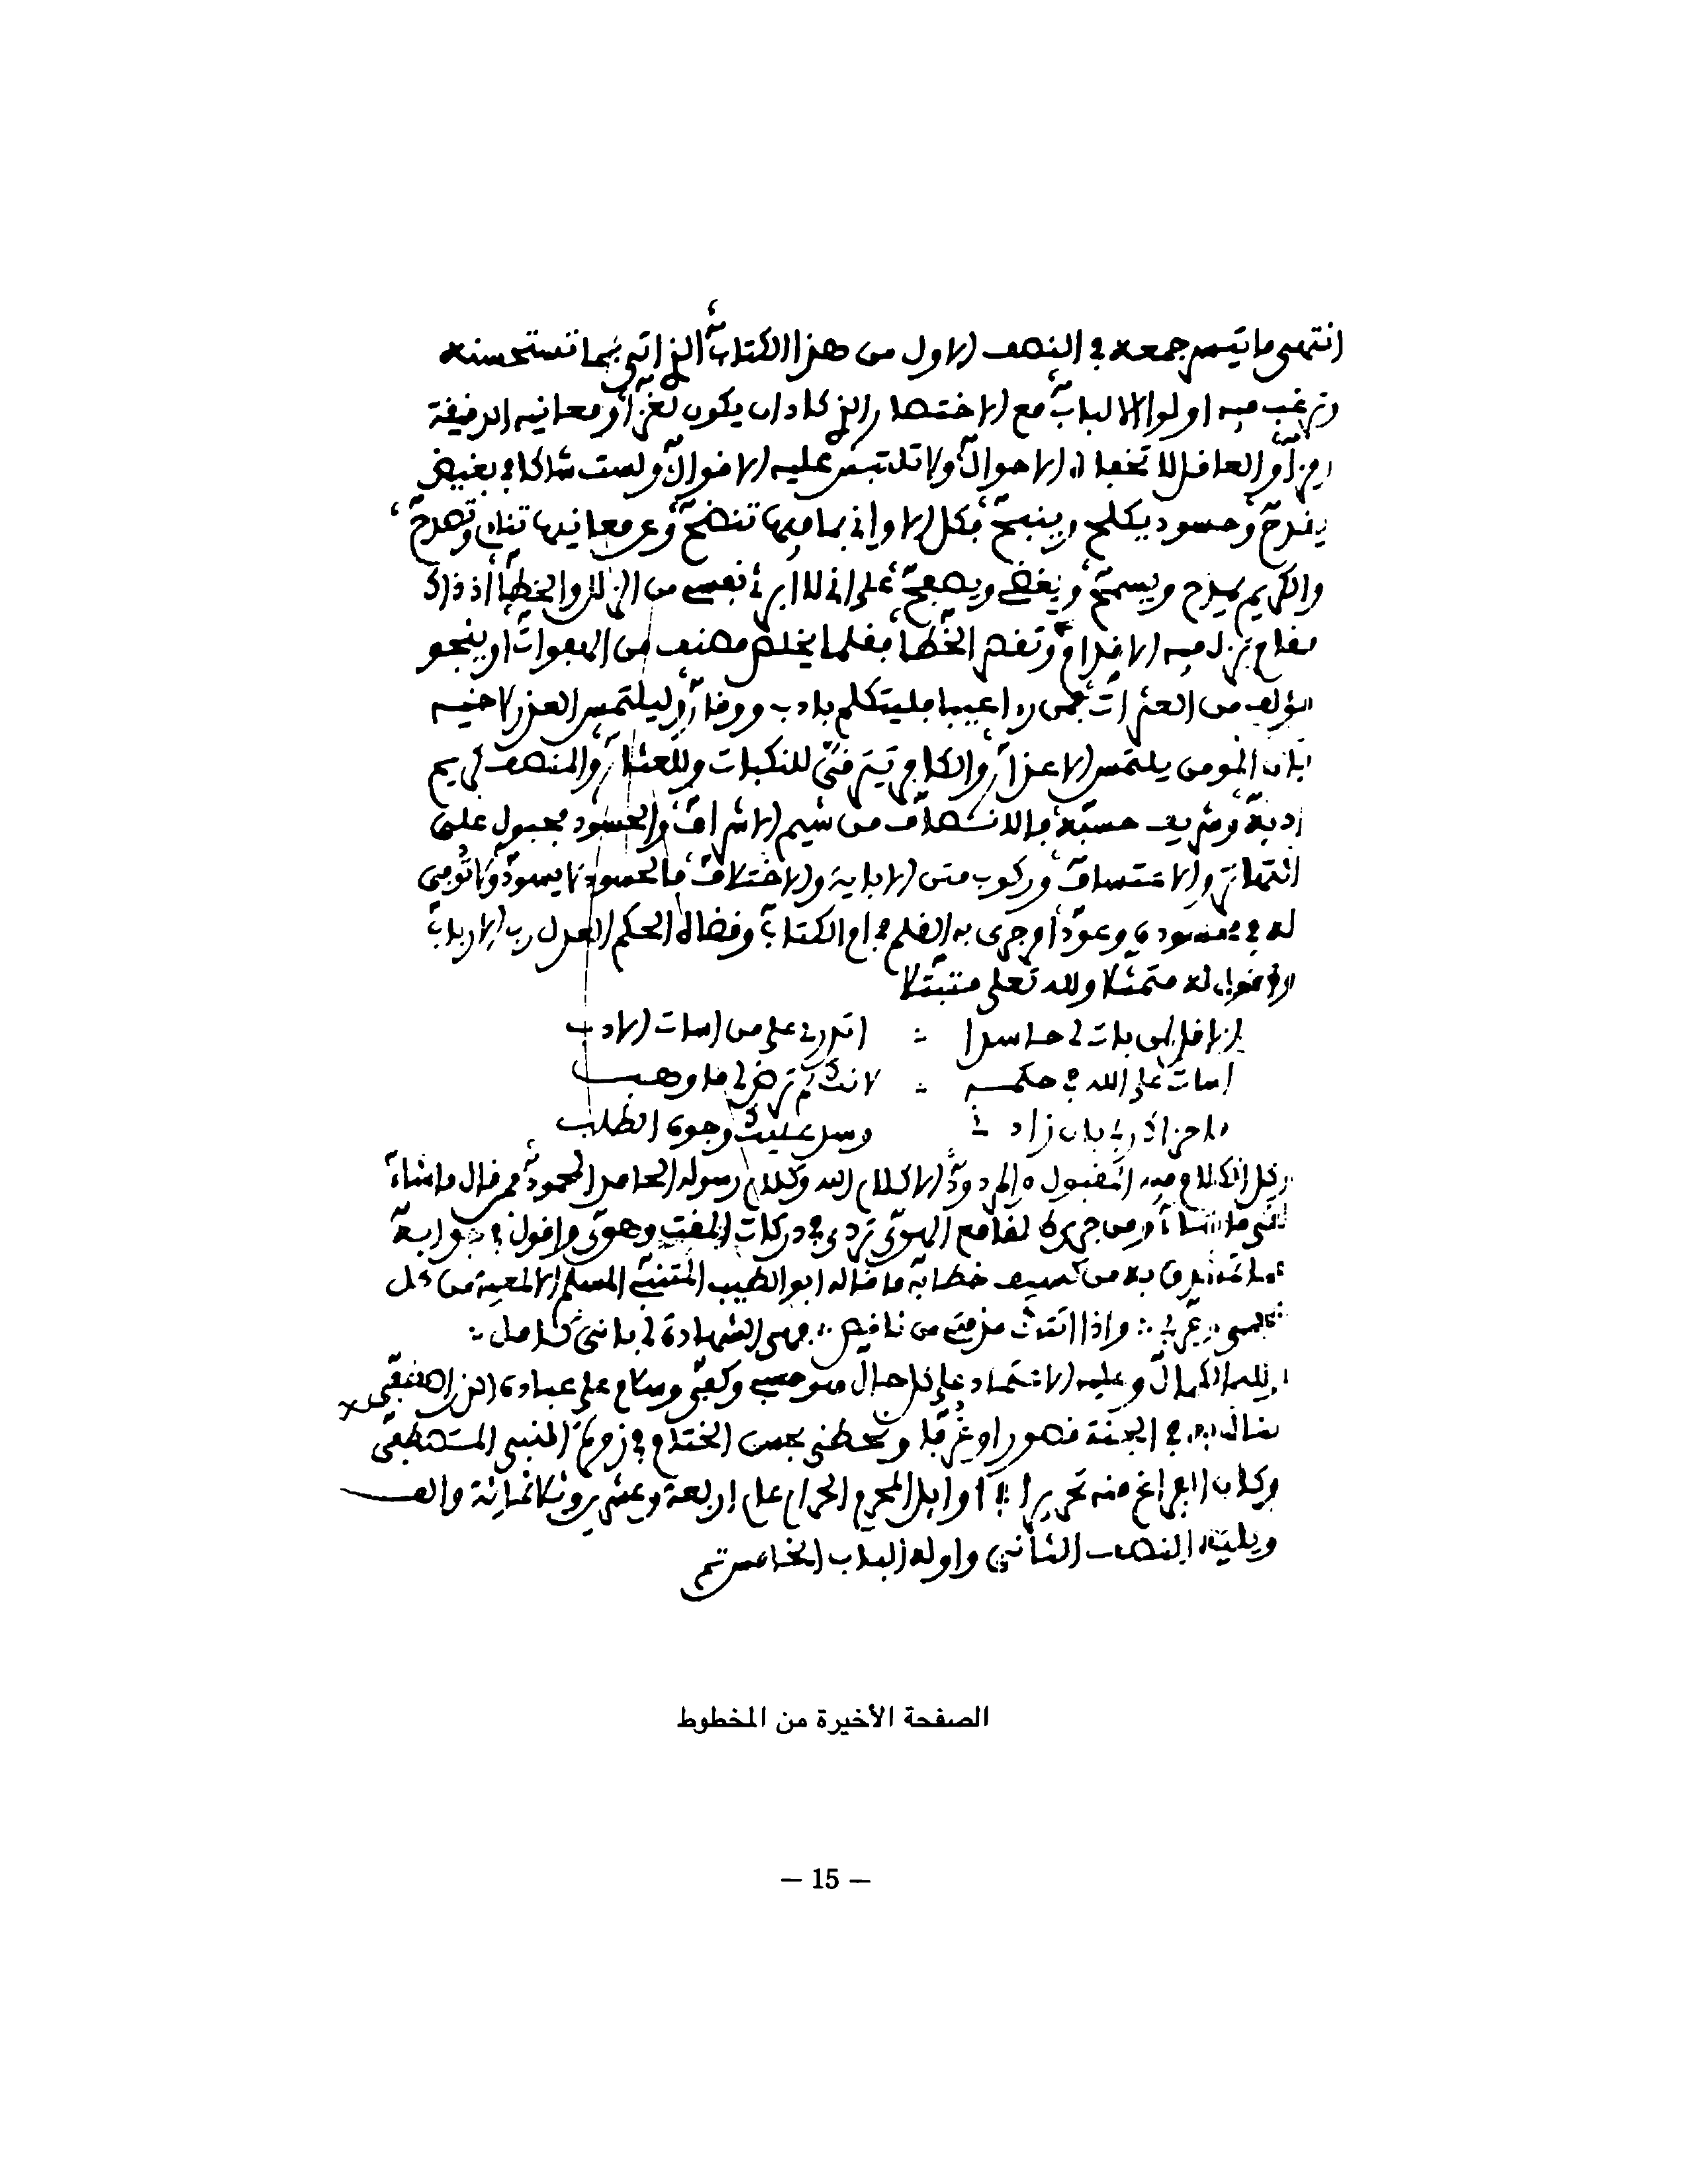 انتهى ما تيسر جمعه في النصف الاول من هذا الكتاب الذي اتى بما تستحسنه
وترغب فيه اولوا الالباب مع الاختصار الذي كاد ان يكون لغزا ومعانيه الدقيقة
رمزا والعاقل لا تخفاه الاحوال ولا تلتبس عليه الاقوال ولست شاكا في بغيض
يقدح وحسود يكلح وينبح فكل الاواني بما فيها تنضح وعن معانيها
والكريم يميح ويسمح ويغضي ويصفح على اني لا ابرئ نفسي من الزلل والخطا اذ ذاك
مقام تزل فيه الاقدام وتقصر الخطا فقلما يخلص مصنف من الهفوات او ينجو
مؤلف من العثرات فمن راء عيبا فليتكلم بادب ووقار وليلتمس العذر لاخيه
فان المومن يلتمس الاعذار والكافر يترقب للنكبات وللعثار والمنصف كريم
ادبه وشريف حسبه فالانصاف من شيم الاشراف والحسود مجبول على
والاعتساف وركوب متن الاباية والاختلاف فالحسود لا يسود ولا تومن
له في وعودا وجرى به القلم في ام الكتاب وقضاه الحكم العدل رب الارباب
واقول له متمثلا ولله تعلى متبتلا
الا قل لمن بات لي حاسدا ؞ اتدري على من اسات الادب
اسات على الله في حكمه ؞ لانك لم ترض لي ما وهب
فاجزاك ربي بان زادني وسد عليك وجوه الطلب
وكل الكلام فيه المقبول والمردود الا كلام الله وكلام رسوله الحامد المحمود فمن قال ما شاء
لقي ما شاء ومن جره لقامع الهوى تردى في دركات المقت وهوى واقول في جوابه
خطابه ما قاله ابو الطيب المتنبي المسلم الالمعية من كل
عجمي وعربي ؞ واذا اتتك مذمتي من ناقص ؞ فهي الشهادة لي باني كامل ؞
ولله الكمال وعليه الاعتماد على كل حال فهو حسبي وكفى وسلام على عباده الذين اصطفى
في الجنة قصورا وغرفا بحسن الختام في زمرة النبي المصطفى
وكان الفراغ منه تحريرا اوايل المحرم الحرام عام اربعة وعشرين وثلاثمائة والف
ويليه النصف الثاني واوله الباب الخامس تم
الصفحة الأخيرة من المخطوط
— 15 —